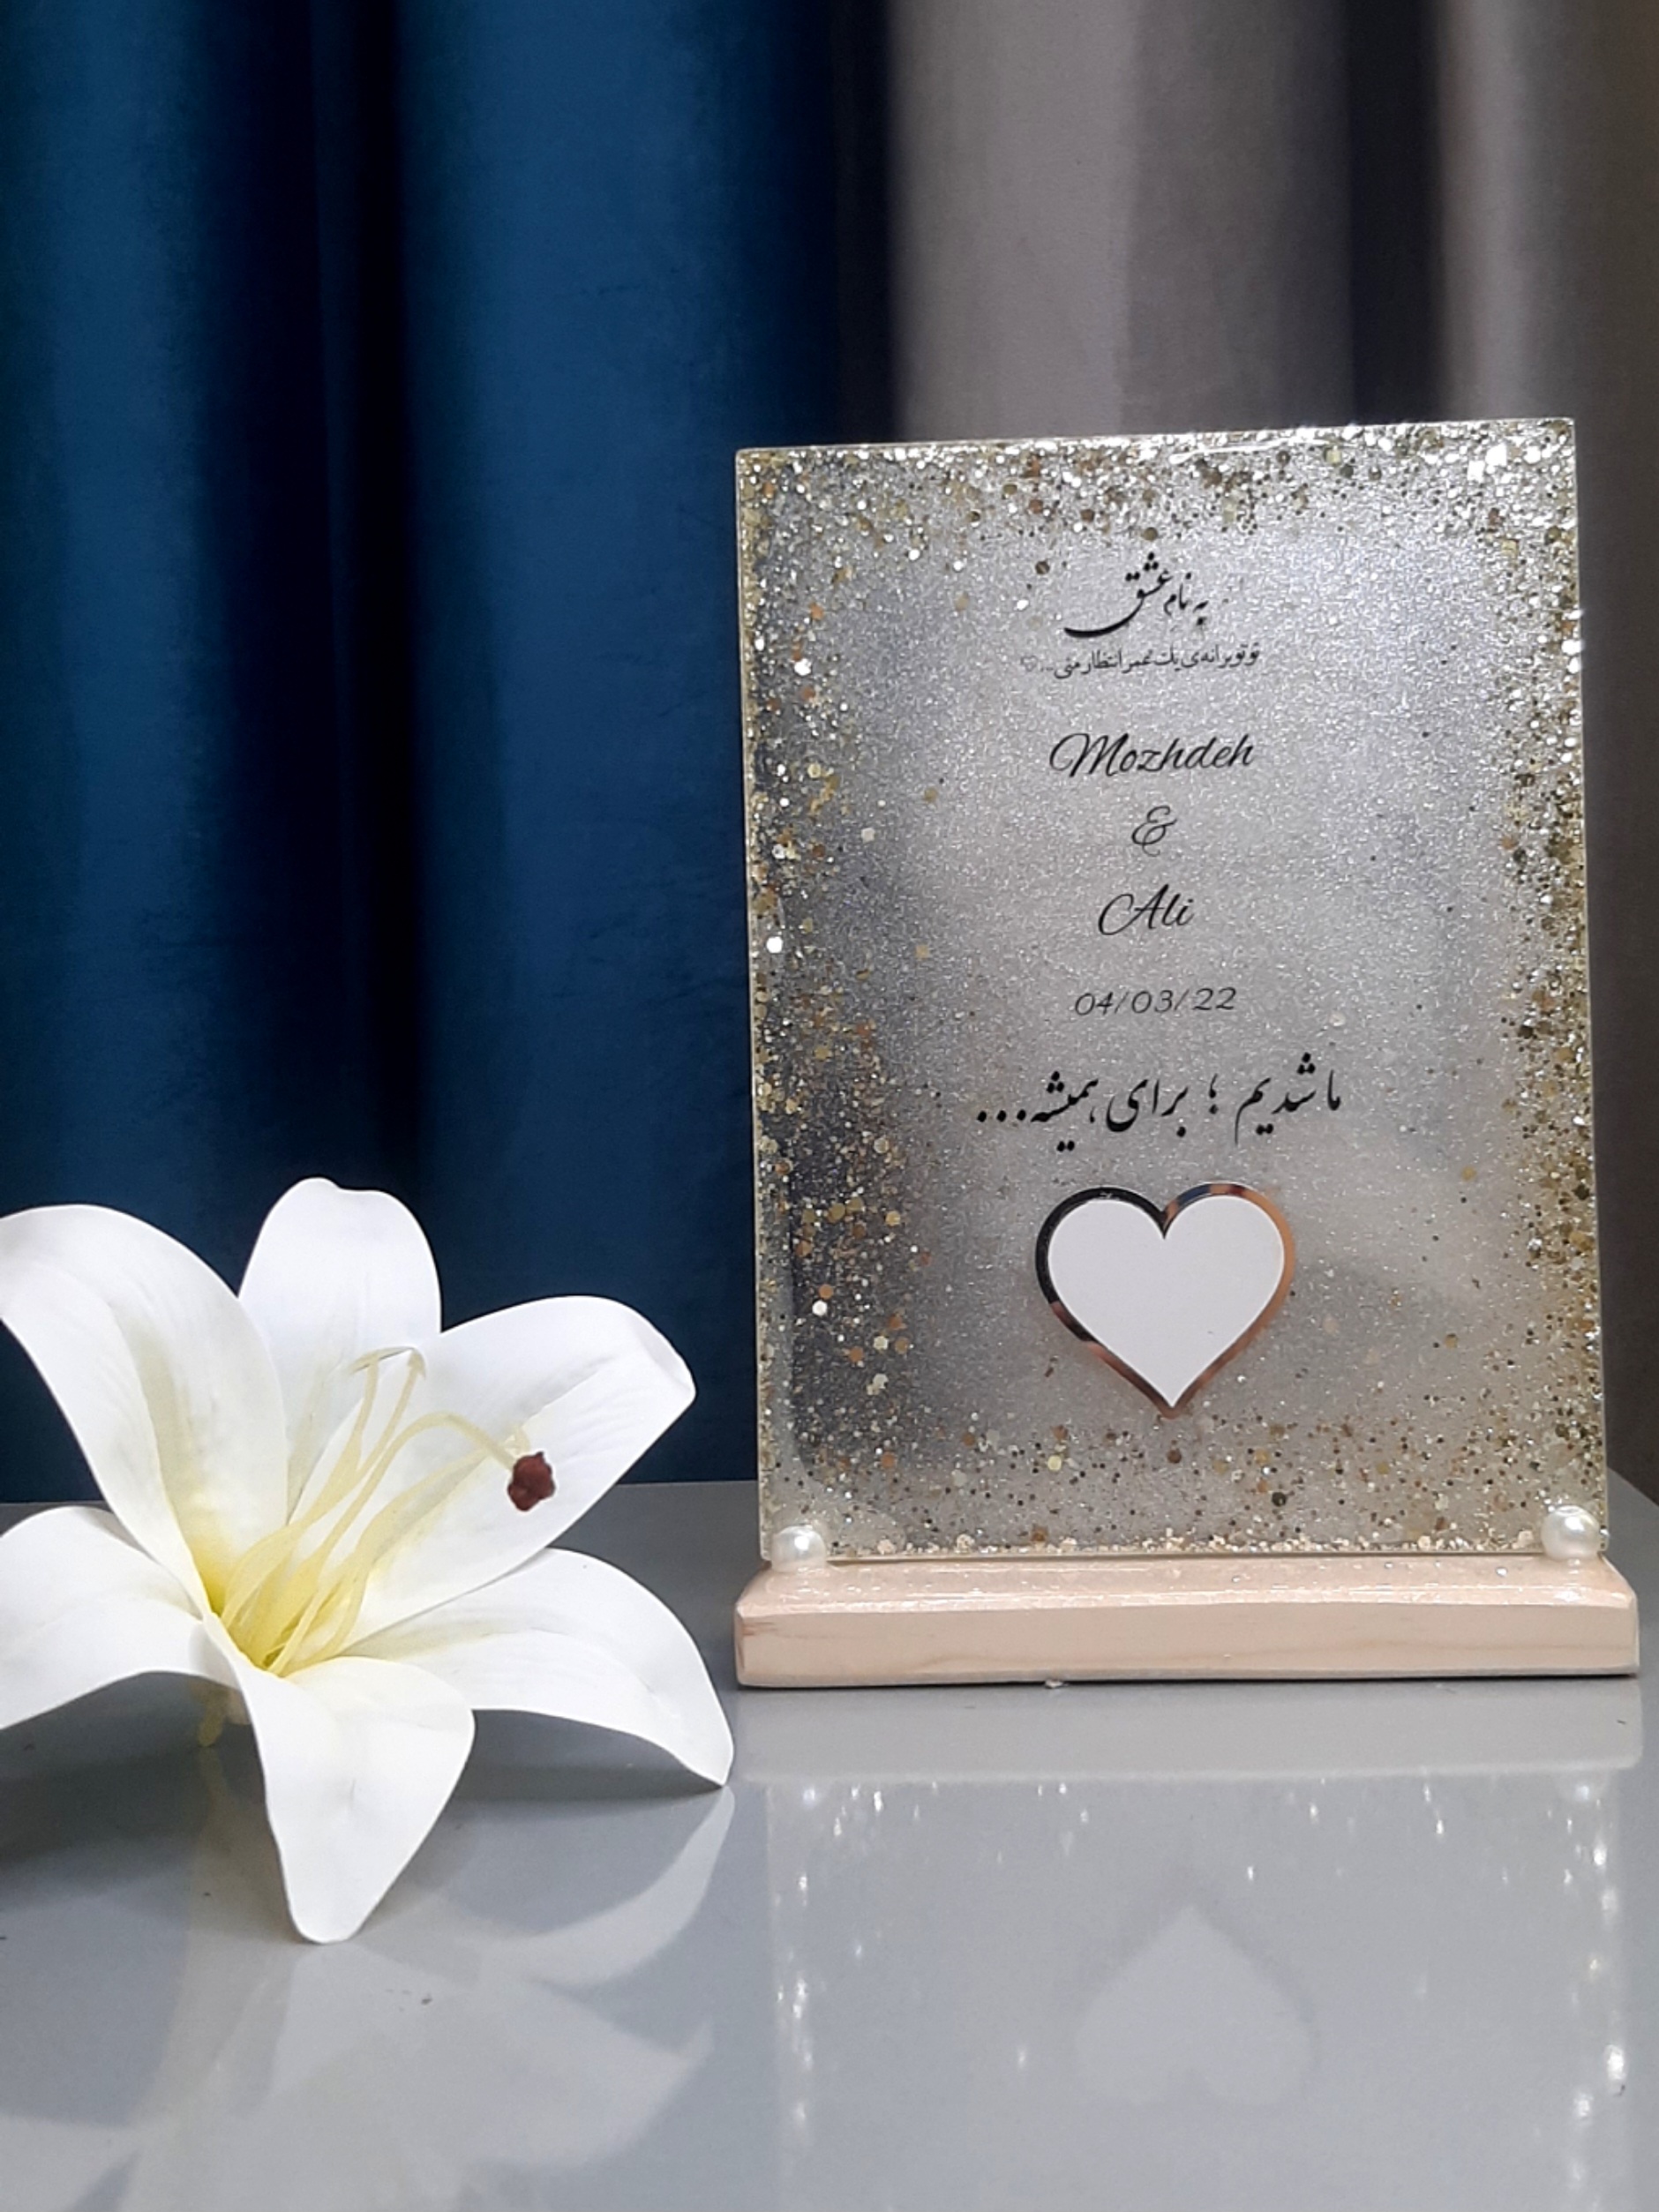 به نام عشق
تو تویرانه‌ی یک عمر انتظار منی...♡
Mozhdeh
&
Ali
04/03/22
ما شدیم ؛ برای همیشه...